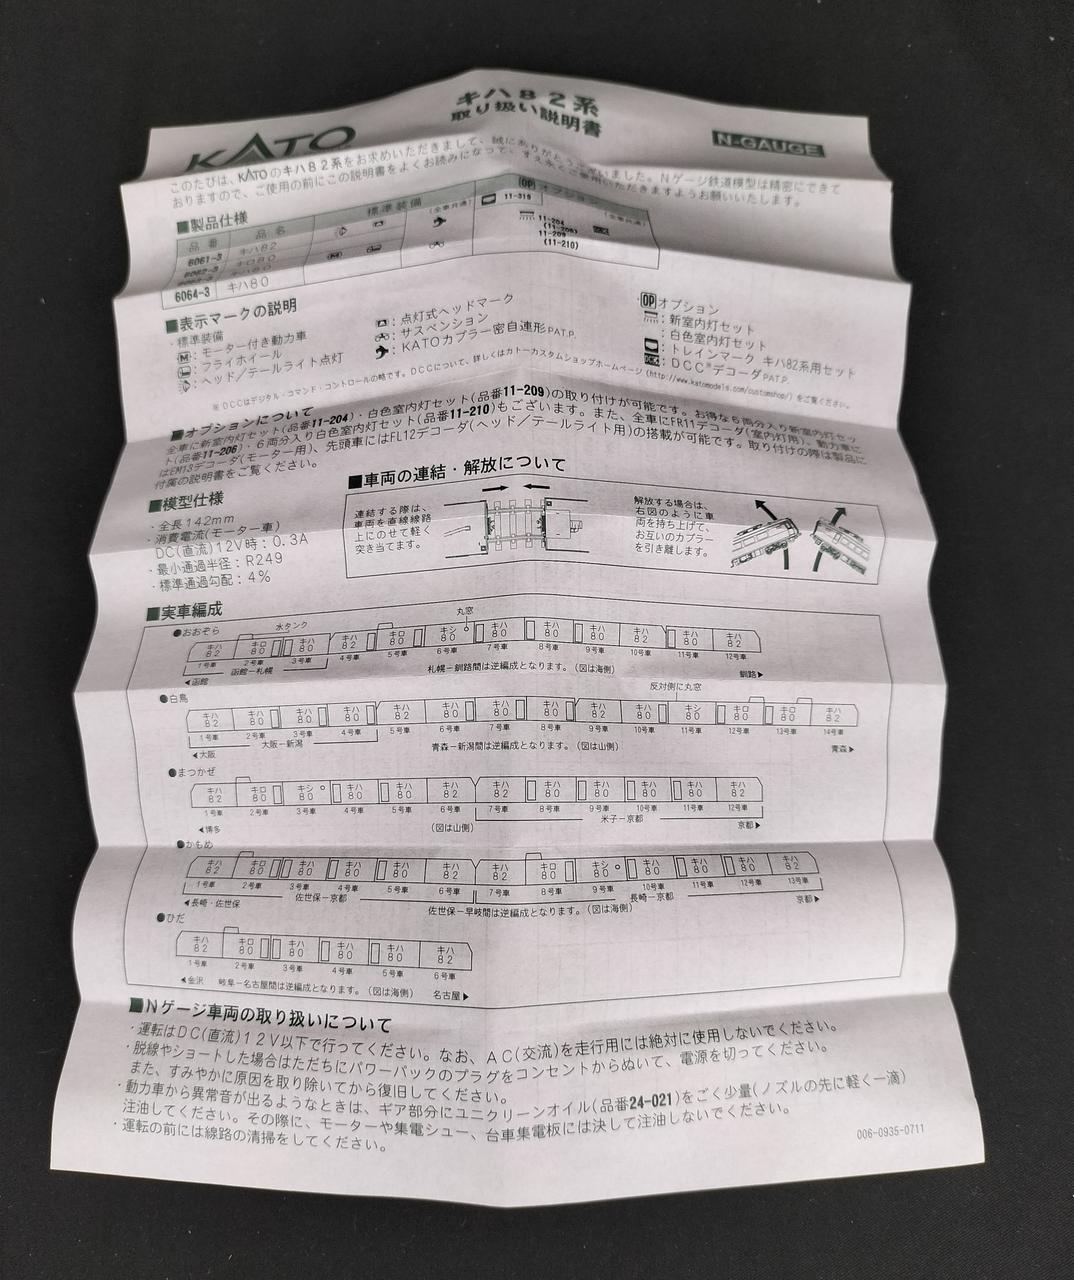 キハ82系
取り扱い説明書
KATO
N-GAUGE
このたびは、KATOのキハ82系をお求めいただきまして、誠にありがとうございました。Nゲージ鉄道模型は精密にできて
おりますので、ご使用の前にこの説明書をよくお読みになって、すえ永くご愛用いただきますようお願いいたします。
■製品仕様
品番 品名 標準装備 (全車共通) OP オプション (全車共通)
6061-3 キハ82 11-319
キロ80 11-204
11-209
(11-210)
6064-3 キハ80
■表示マークの説明
・標準装備
M：モーター付き動力車
：フライホイール
：ヘッド／テールライト点灯
：点灯式ヘッドマーク
：サスペンション
：KATOカプラー密自連形PAT.P.
OP オプション
：新室内灯セット
白色室内灯セット
：トレインマーク キハ82系用セット
DCC：DCC※デコーダPAT.P.
※DCCはデジタル・コマンド・コントロールの略です。DCCについて、詳しくはカトーカスタムショップホームページ(http://www.katomodels.com/customshop/)をご覧ください。
■オプションについて
全車に新室内灯セット(品番11-204)・白色室内灯セット(品番11-209)の取り付けが可能です。お得な6両分入り新室内灯セッ
ト(品番11-206)・6両分入り白色室内灯セット(品番11-210)もございます。また、全車にFR11デコーダ(室内灯用)、動力車に
はEM13デコーダ(モーター用)、先頭車にはFL12デコーダ(ヘッド／テールライト用)の搭載が可能です。取り付けの際は製品に
付属の説明書をご覧ください。
■模型仕様
・全長142mm
・消費電流(モーター車)
DC(直流)12V時：0.3A
・最小通過半径：R249
・標準通過勾配：4%
■車両の連結・解放について
連結する際は、
車両を直線線路
上にのせて軽く
突き当てます。
解放する場合は、
右図のように車
両を持ち上げて、
お互いのカプラー
を引き離します。
■実車編成
●おおぞら 水タンク 丸窓
キハ82 キロ80 キハ80 キハ82 キロ80 キシ80 キハ80 キハ80 キハ80 キハ82 キハ80 キハ82
1号車 2号車 3号車 4号車 5号車 6号車 7号車 8号車 9号車 10号車 11号車 12号車
◀函館 函館−札幌 札幌−釧路間は逆編成となります。(図は海側) 釧路▶
●白鳥 反対側に丸窓
キハ82 キロ80 キハ80 キハ80 キハ82 キハ80 キハ80 キハ80 キハ82 キハ80 キシ80 キロ80 キロ80 キハ82
1号車 2号車 3号車 4号車 5号車 6号車 7号車 8号車 9号車 10号車 11号車 12号車 13号車 14号車
◀大阪 大阪−新潟 青森−新潟間は逆編成となります。(図は山側) 青森▶
●まつかぜ
キハ82 キロ80 キシ80 キハ80 キハ80 キハ82 キハ82 キハ80 キハ80 キハ80 キハ80 キハ82
1号車 2号車 3号車 4号車 5号車 6号車 7号車 8号車 9号車 10号車 11号車 12号車
◀博多 (図は山側) 米子−京都 京都▶
●かもめ
キハ82 キロ80 キハ80 キハ80 キハ80 キハ82 キハ82 キロ80 キシ80 キハ80 キハ80 キハ80 キハ82
1号車 2号車 3号車 4号車 5号車 6号車 7号車 8号車 9号車 10号車 11号車 12号車 13号車
◀長崎・佐世保 佐世保−京都 佐世保−早岐間は逆編成となります。(図は海側) 長崎−京都 京都▶
●ひだ
キハ82 キロ80 キハ80 キハ80 キハ80 キハ82
1号車 2号車 3号車 4号車 5号車 6号車
◀金沢 岐阜−名古屋間は逆編成となります。(図は海側) 名古屋▶
■Nゲージ車両の取り扱いについて
・運転はDC(直流)12V以下で行ってください。なお、AC(交流)を走行用には絶対に使用しないでください。
・脱線やショートした場合はただちにパワーパックのプラグをコンセントからぬいて、電源を切ってください。
また、すみやかに原因を取り除いてから復旧してください。
・動力車から異常音が出るようなときは、ギア部分にユニクリーンオイル(品番24-021)をごく少量(ノズルの先に軽く一滴)
注油してください。その際に、モーターや集電シュー、台車集電板には決して注油しないでください。
・運転の前には線路の清掃をしてください。
006-0935-0711